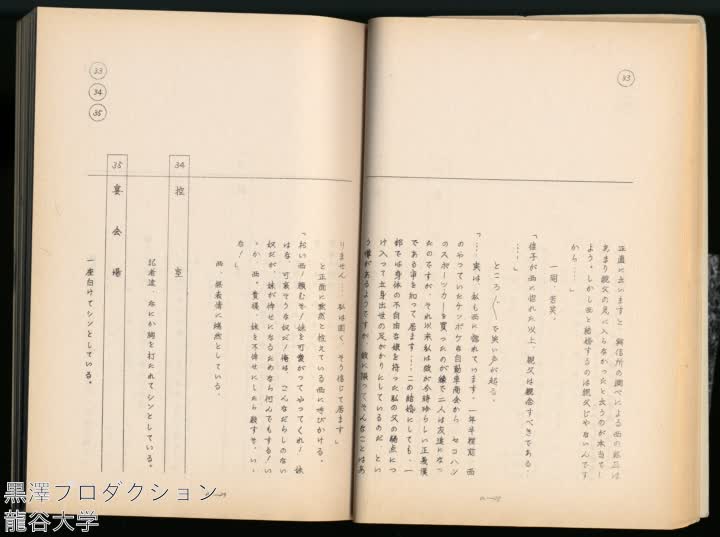 33
正直に云いますと、興信所の調べによる西の
あまり親父の気に入らなかったと云うのが本当でし
ょう。しかし西と結婚するのは親父じゃないんです
から……」
一同、苦笑。
「佳子が西に惚れた以上、親父は観念すべきである…
…」
ところ／＼で笑い声が起る。
「……実は、私も西に惚れています。一年半程前、西
のやっていたケッポケな自動車商会から、セコハン
のスポーツカーを買ったのが縁で二人は友達になっ
たのですが、それ以来私は彼が今時珍らしい正義漢
である事を知って居ます……この結婚にしても、一
部では身体の不自由な娘を持った私の父の弱点につ
け入って立身出世の足がかりにしているのだ、とい
う噂があるようですが、彼に限ってそんなことはあ
33
34
35
りません……私は固く、そう信じて居ます」
と正面に黙然と控えている西に呼びかける。
「おい西！頼むぞ！妹を可愛がってやってくれ！妹
はな、可哀そうな奴だ！俺は、こんなだらしのない
奴だが、妹が倖せになるためなら何んでもする！い
ゝか、西。貴様、妹を不倖せにしたら殺すぞ、い、
な！」
西、無表情に端然としている。
34 控室
記者達、なにか胸を打たれてシンとしている。
35 宴会場
一座白けてシンとしている。
黒澤プロダクション
龍谷大学